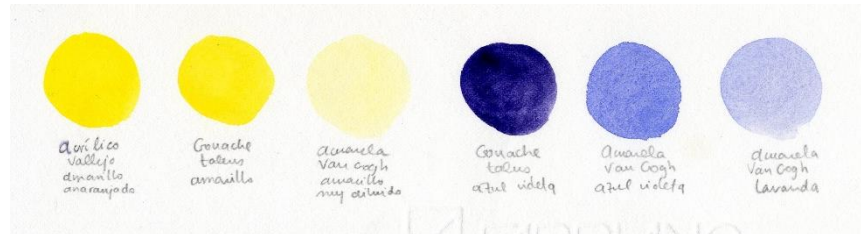 acrílico
Vallejo
amarillo
anaranjado
Gouache
talens
amarillo
acuarela
Van Gogh
amarillo
muy diluido
Gouache
talens
azul violeta
Acuarela
Van Gogh
azul violeta
acuarela
Van Gogh
Lavanda